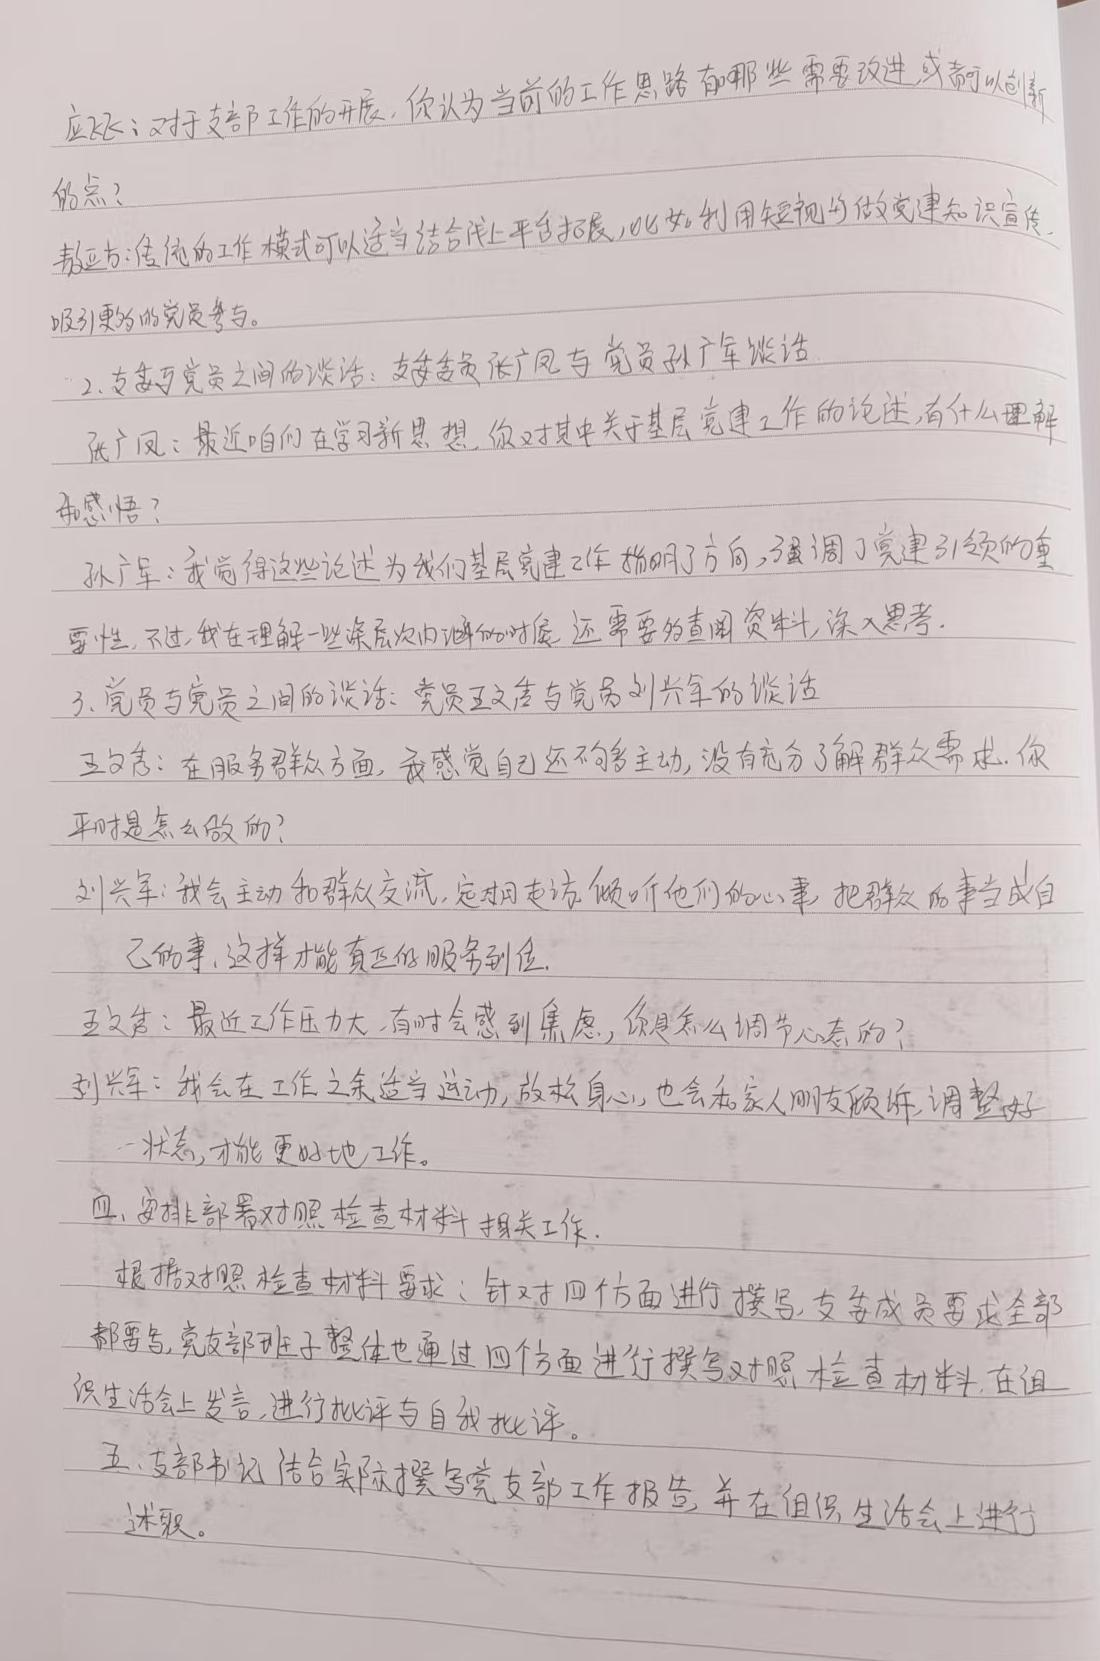 应飞飞：对于支部工作的开展，你认为当前的工作思路有哪些需要改进，或者可以创新
的点？
：传统的工作模式可以适当结合线上平台拓展，比如利用短视的做党建知识宣传，
吸引更多的党员参与。
2、支委与党员之间的谈话：支委委员张广凤与党员孙广军谈话
张广凤：最近咱们在学习新思想，你对其中关于基层党建工作的论述，有什么理解
和感悟？
孙广军：我觉得这些论述为我们基层党建工作指明了方向，强调了党建引领的重
要性，不过，我在理解一些深层次内涵的时候，还需要多查阅资料，深入思考。
3、党员与党员之间的谈话：党员王文吉与党员刘兴军的谈话
王文吉：在服务群众方面，我感觉自己还不够主动，没有充分了解群众需求，你
平时是怎么做的？
刘兴军：我会主动和群众交流，定期走访，倾听他们的心事，把群众的事当成自
己的事，这样才能真正的服务到位。
王文吉：最近工作压力大，有时会感到焦虑，你是怎么调节心态的？
刘兴军：我会在工作之余适当运动，放松身心，也会和家人朋友倾诉，调整好
状态，才能更好地工作。
四、安排部署对照检查材料相关工作.
根据对照检查材料要求：针对四个方面进行撰写，支委成员要求全部
都要写，党支部班子整体也通过四个方面进行撰写对照检查材料，在组
织生活会上发言，进行批评与自我批评。
五、支部书记结合实际撰写党支部工作报告，并在组织生活会上进行
述职。